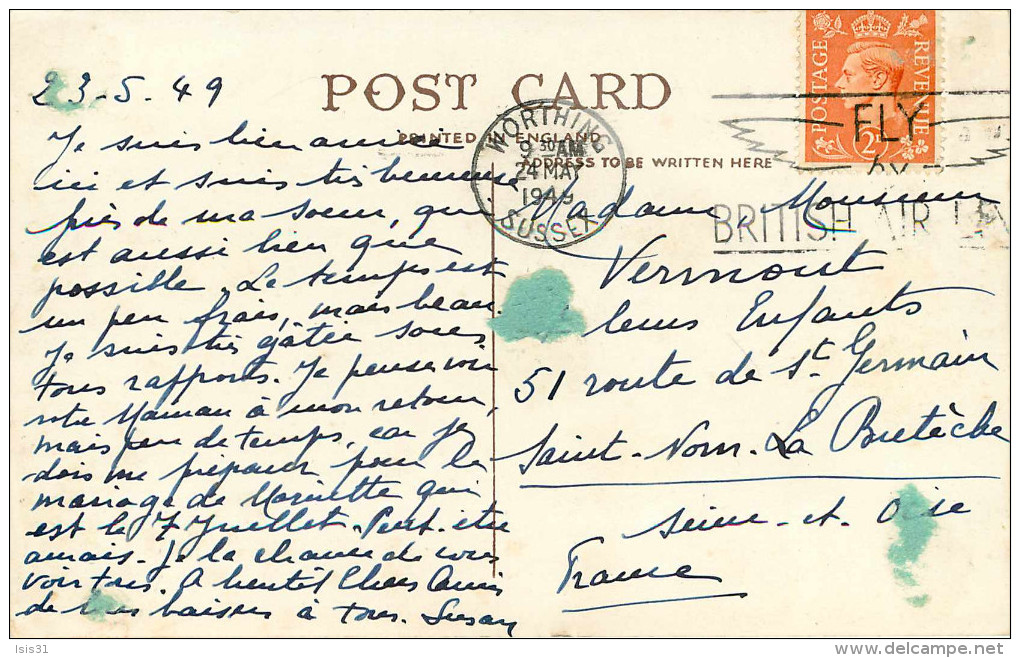 23-5-49
POST CARD
PRINTED IN ENGLAND
ADDRESS TO BE WRITTEN HERE
WORTHING
9 30 AM
24 MAY
1949
SUSSEX
POSTAGE REVENUE
2D
FLY
BY
BRITISH AIR LINES
Je suis bien arrivée
ici et suis très heureuse
près de ma soeur, qui
est aussi bien que
possible. Le temps est
un peu frais, mais beau.
Je suis très gâtée sous
tous rapports. Je pense voir
votre Maman à mon retour,
mais peu de temps, car je
dois me préparer pour le
mariage de Mariette qui
est le 7 Juillet. Peut-être
aurais-Je la chance de vous
voir tous. A bientôt Chers Amis
de bons baisers à tous. Susan
Madame, Monsieur
Vermont
& leurs Enfants
51 route de St. Germain
Saint-Nom-La Bretèche
Seine-et-Oise
France
Isis31
delcampe.net